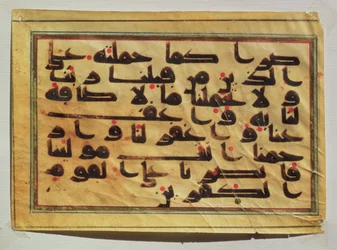 صرا كما حملته على
الذين من قبلنا ربنا
و لا تحملنا ما لا طاقة
لنا به واعف
عنا واغفر لنا وار
حمنا انت مولنا
فانصرنا على القوم
الكفرين